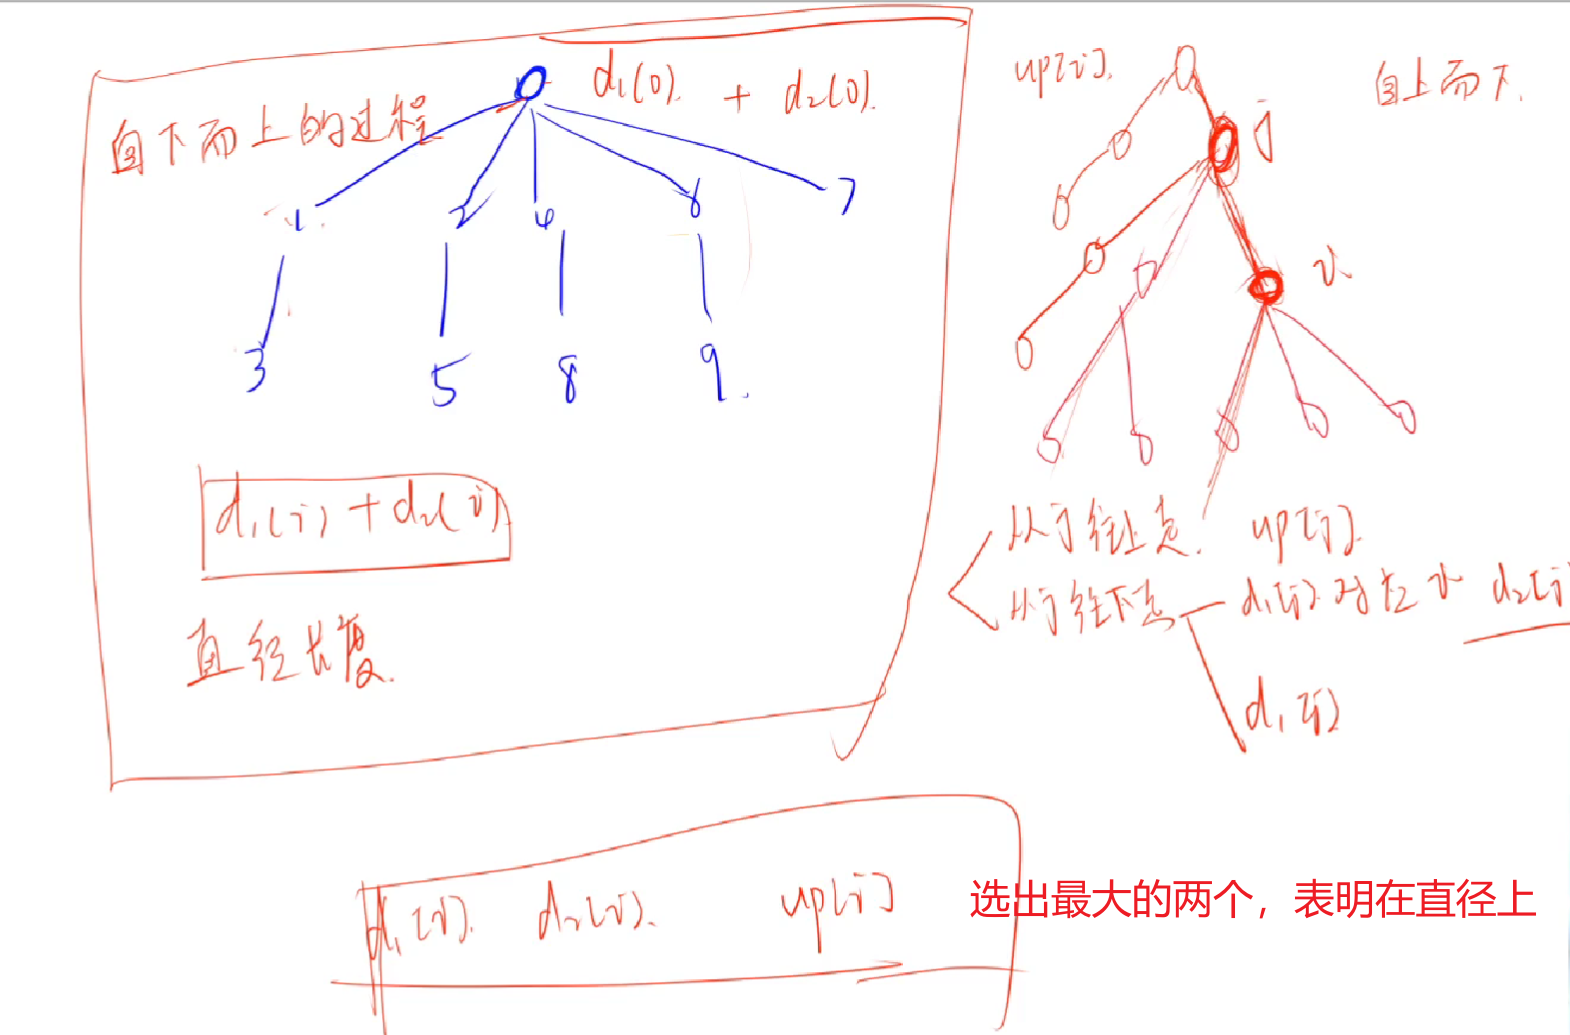 自下而上的过程
d₁(0) + d₂(0).
1 2 4 6 7
3 5 8 9.
d₁(i) + d₂(i)
直径长度.
up[i]. 自上而下.
j
i.
从j往上走. up[j].
从j往下走 d₁[j] 对应 i d₂[j]
d₁[j]
d₁[i]. d₂[i]. up[i] 选出最大的两个，表明在直径上